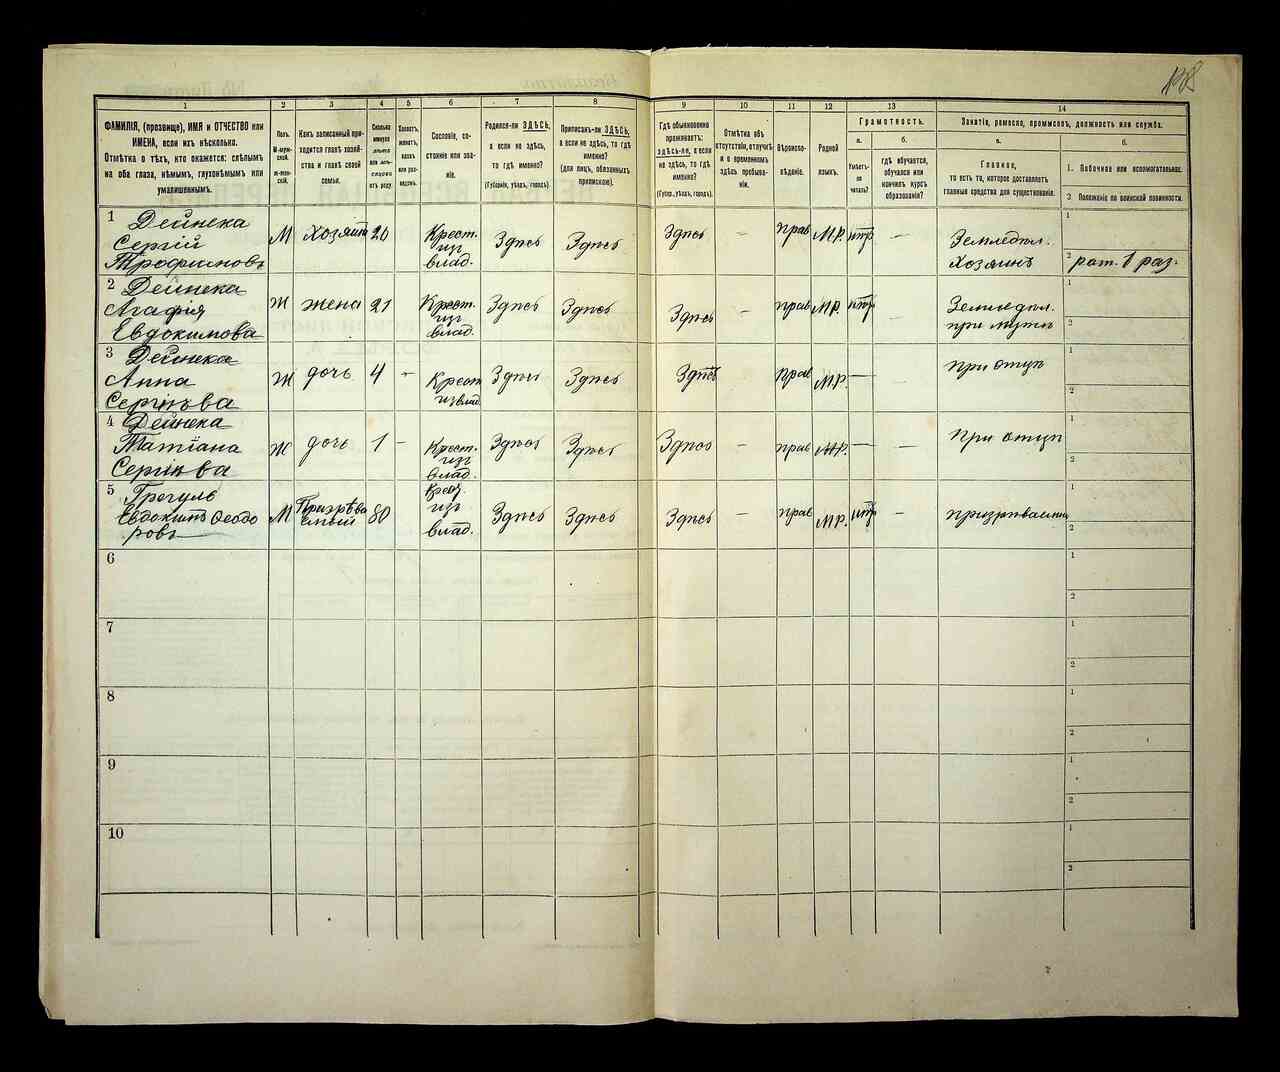 188
1
2
3
4
5
6
7
8
9
10
11
12
13
14
ФАМИЛІЯ, (прозвище), ИМЯ и ОТЧЕСТВО или
ИМЕНА, если ихъ нѣсколько.
Отмѣтка о тѣхъ, кто окажется: слѣпымъ
на оба глаза, нѣмымъ, глухонѣмымъ или
умалишеннымъ.
Полъ.
М-муж-
ской.
Ж-жен-
скій.
Какъ записанный при-
ходится главѣ хозяй-
ства и главѣ своей
семьи.
Сколько
минуло
лѣтъ
или мѣ-
сяцевъ
отъ роду.
Холостъ,
женатъ,
вдовъ
или раз-
веденъ.
Сословіе, со-
стояніе или зва-
ніе.
Родился-ли ЗДѢСЬ,
а если не здѣсь,
то гдѣ именно?
(Губернія, уѣздъ, городъ).
Приписанъ-ли ЗДѢСЬ,
а если не здѣсь, то гдѣ
именно?
(для лицъ, обязанныхъ
припискою).
Гдѣ обыкновенно
проживаетъ:
здѣсь-ли, а если
не здѣсь, то гдѣ
именно?
(Губер., уѣздъ, городъ).
Отмѣтка объ
отсутствіи, отлучкѣ
и о временномъ
здѣсь пребыва-
ніи.
Вѣроиспо-
вѣданіе.
Родной
языкъ.
Грамотность.
а.
Умѣетъ-
ли
читать?
б.
гдѣ обучается,
обучался или
кончилъ курсъ
образованія?
Занятіе, ремесло, промыселъ, должность или служба.
а.
Главное,
то есть то, которое доставляетъ
главныя средства для существованія.
б.
1. Побочное или вспомогательное.
2. Положеніе по воинской повинности.
1 Дейнека
Сергій
Трофимовъ
М хозяинъ 20 Крест. изъ влад. Здѣсь Здѣсь Здѣсь – прав МР. нѣтъ –
Земледѣл.
Хозяинъ
1
2 рат. 1 раз.
2 Дейнека
Агафія
Евдокимова
Ж жена 21 Крест. изъ влад. Здѣсь Здѣсь Здѣсь – прав МР. нѣтъ –
Земледѣл.
при мужѣ
1
2
3 Дейнека
Анна
Сергіева
Ж дочь 4 – Крест изъ влад. Здѣсь Здѣсь Здѣсь – прав МР. – –
при отцѣ
1
2
4 Дейнека
Татіана
Сергіева
Ж дочь 1 – Крест. изъ влад. Здѣсь Здѣсь Здѣсь – прав МР. – –
При отцѣ
1
2
5
Евдокимъ Ѳеодо
ровъ
М Призрѣва емый 80 Крес. изъ влад. Здѣсь Здѣсь Здѣсь – прав МР. нѣтъ –
призрѣваемый
1
2
6
1
2
7
1
2
8
1
2
9
1
2
10
1
2